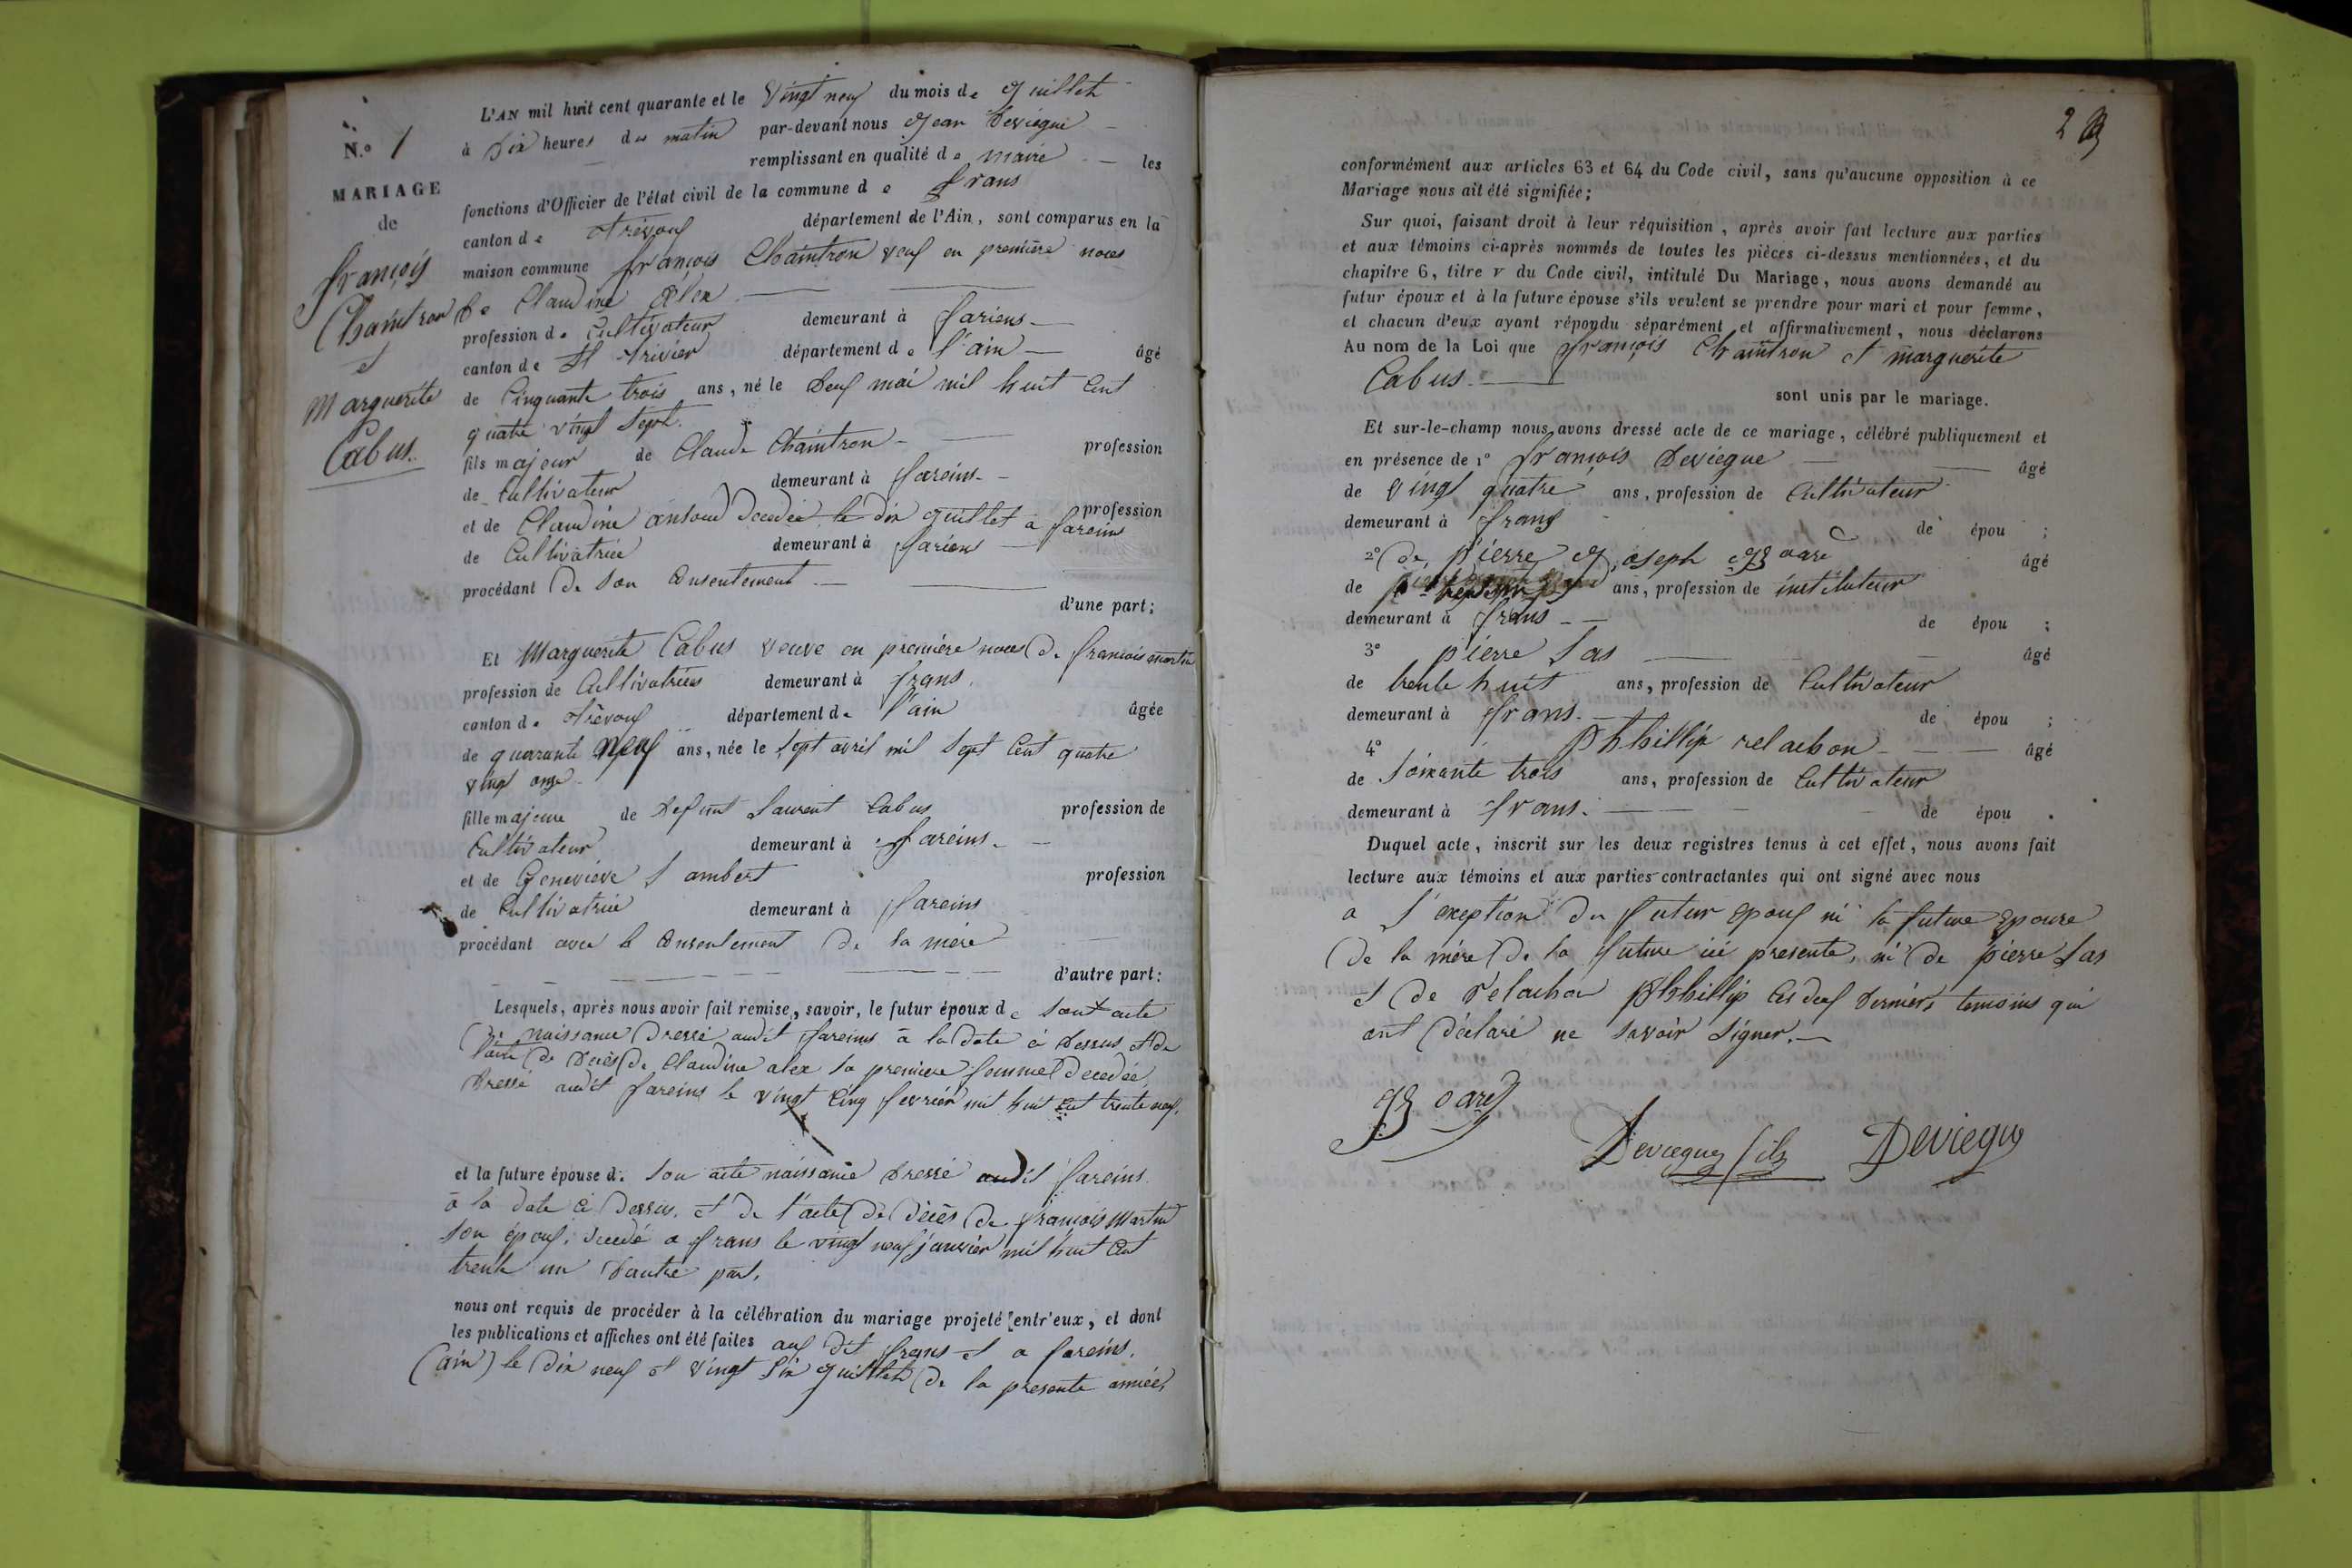 N.o 1
MARIAGE
de
françois
Chaintron
et
Marguerite
Cabus.
L'AN mil huit cent quarante et le Vingt neuf du mois de Juillet
à Dix heures du matin par-devant nous Jean Deviegue
remplissant en qualité de maire les
fonctions d'Officier de l'état civil de la commune de frans
canton de Trévoux département de l'Ain, sont comparus en la
maison commune françois Chaintron veuf en première noces
de Claudine Alex
profession de Cultivateur demeurant à fariens
canton de St Trivier département de l'ain âgé
de Cinquante trois ans, né le Deux mai mil huit Cent
quatre vingt Sept.
fils majeur de Claude Chaintron profession
de Cultivateur demeurant à fareins
et de Claudine decedée le dix Juillet a fareins profession
de Cultivatrice demeurant à fariens
procédant De Son Consentement
d'une part;
Et Marguerite Cabus veuve en première noces De francois martin
profession de Cultivatrices demeurant à frans
canton de Trévoux département de l'ain âgée
de quarante neuf ans, née le Sept avril mil Sept Cent quatre
vingt onze
fille majeure de Defunt Laurent Cabus profession de
Cultivateur demeurant à fareins
et de Geneviève Lambert profession
de Cultivatrice demeurant à fareins
procédant avec le Consentement De Sa mère
d'autre part:
Lesquels, après nous avoir fait remise, savoir, le futur époux de Sont acte
De naissance Dressé audit fareins à la Date ci Dessus et De
l'acte De Decès De Claudine alex Sa premiere femme Decedée,
Dressé audit fareins le vingt Cinq fevrier mil huit Cent trente neuf,
et la future épouse de Son acte naissance Dressé audit fareins
à la Date ci Dessus, et De l'acte De Décès De françois Martin
Son époux, Decedé a frans le vingt neuf janvier mil huit Cent
trente un D'autre part,
nous ont requis de procéder à la célébration du mariage projeté entr'eux, et dont
les publications et affiches ont été faites aux Dit frans et a fareins.
(ain) le Dix neuf et Vingt Six Juillet De la presente année,
2
conformément aux articles 63 et 64 du Code civil, sans qu'aucune opposition à ce
Mariage nous ait été signifiée;
Sur quoi, faisant droit à leur réquisition, après avoir fait lecture aux parties
et aux témoins ci-après nommés de toutes les pièces ci-dessus mentionnées, et du
chapitre 6, titre v du Code civil, intitulé Du Mariage, nous avons demandé au
futur époux et à la future épouse s'ils veulent se prendre pour mari et pour femme,
et chacun d'eux ayant répondu séparément et affirmativement, nous déclarons
Au nom de la Loi que françois Chaintron et marguerite
Cabus
sont unis par le mariage.
Et sur-le-champ nous avons dressé acte de ce mariage, célébré publiquement et
en présence de 1° françois Deviegue âgé
de Vingt quatre ans, profession de Cultivateur
demeurant à frans de épou ;
2° De, pierre Joseph âgé
de ans, profession de instituteur
demeurant à frans de épou ;
3° pierre Sas âgé
de trente huit ans, profession de Cultivateur
demeurant à frans. de épou ;
4° Phhillip relachon âgé
de Soixante trois ans, profession de Cultivateur
demeurant à frans. de épou .
Duquel acte, inscrit sur les deux registres tenus à cet effet, nous avons fait
lecture aux témoins et aux parties contractantes qui ont signé avec nous
a l'exeption Du futur epoux ni la future Epouse
De la mère De la future ici presente, ni De pierre Sas
et De relachon Phhillip les deux Derniers temoins qui
ont Déclaré ne Savoir Signer.
Deviegue fils Deviegue